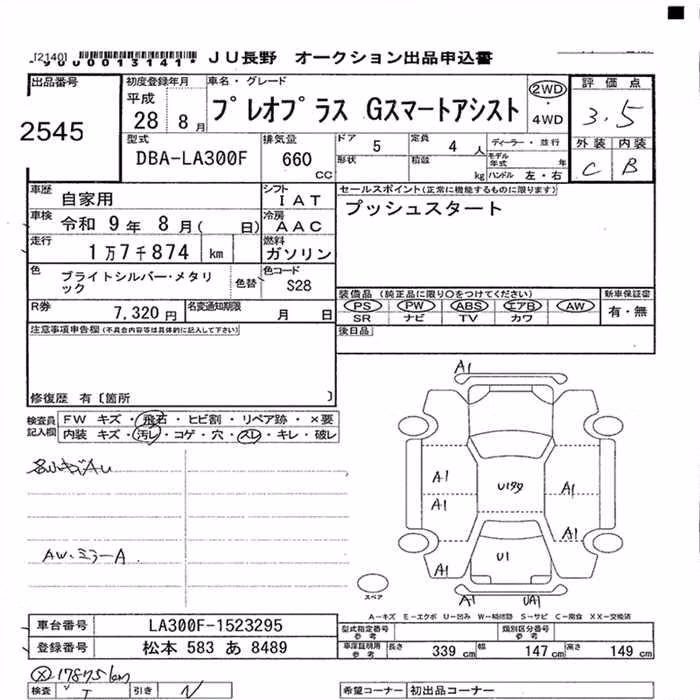 [2140]
*900013141* ＪＵ長野 オークション出品申込書
出品番号
2545
初度登録年月
平成
28 8月
車名・グレード
プレオプラス Gスマートアシスト
2WD
・
4WD
評価点
3.5
外装 内装
C B
型式
DBA-LA300F
排気量
660
CC
ドア
5
定員
4人
ディーラー・並行
形状
積載
kg
モデル年式
年
ハンドル 左・右
車歴
自家用
シフト
IAT
セールスポイント(正常に機能するものに限ります)
プッシュスタート
車検
令和 9年 8月( 日)
冷房
AAC
走行
1万7千874 km
燃料
ガソリン
色
ブライトシルバー・メタリック
色替
色コード
S28
R券
7,320円
名変通知期限
月 日
装備品 (純正品に限り○をつけてください)
PS PW ABS エアB AW
SR ナビ TV カワ
新車保証書
有・無
注意事項申告欄(不具合内容等は具体的に記入して下さい)
後日品
修復歴 有〔箇所 〕
検査員記入欄
FW キズ・飛石・ヒビ割・リペア跡・×要
内装 キズ・汚レ・コゲ・穴・スレ・キレ・破レ
AW.ミラーA
A1
A1
A1
A1
A1
A1
A1
A1
UA1
U1
スペア
A－キズ E－エクボ U－凹み W－補修跡 S－サビ C－腐食 XX－交換済
車台番号
LA300F-1523295
登録番号
松本 583 あ 8489
型式指定番号
参考
類別区分番号
参考
車庫証明用
参考
長さ
339 cm
幅
147 cm
高さ
149 cm
17875km
検査
引き
希望コーナー 初出品コーナー